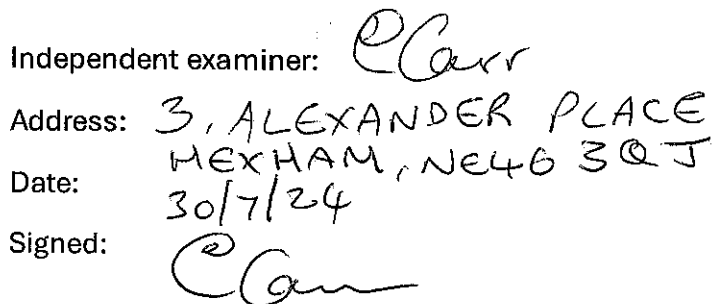 Independent examiner: C Carr
Address: 3, ALEXANDER PLACE
HEXHAM, NE46 3QJ
Date: 30/7/24
Signed: C Carr